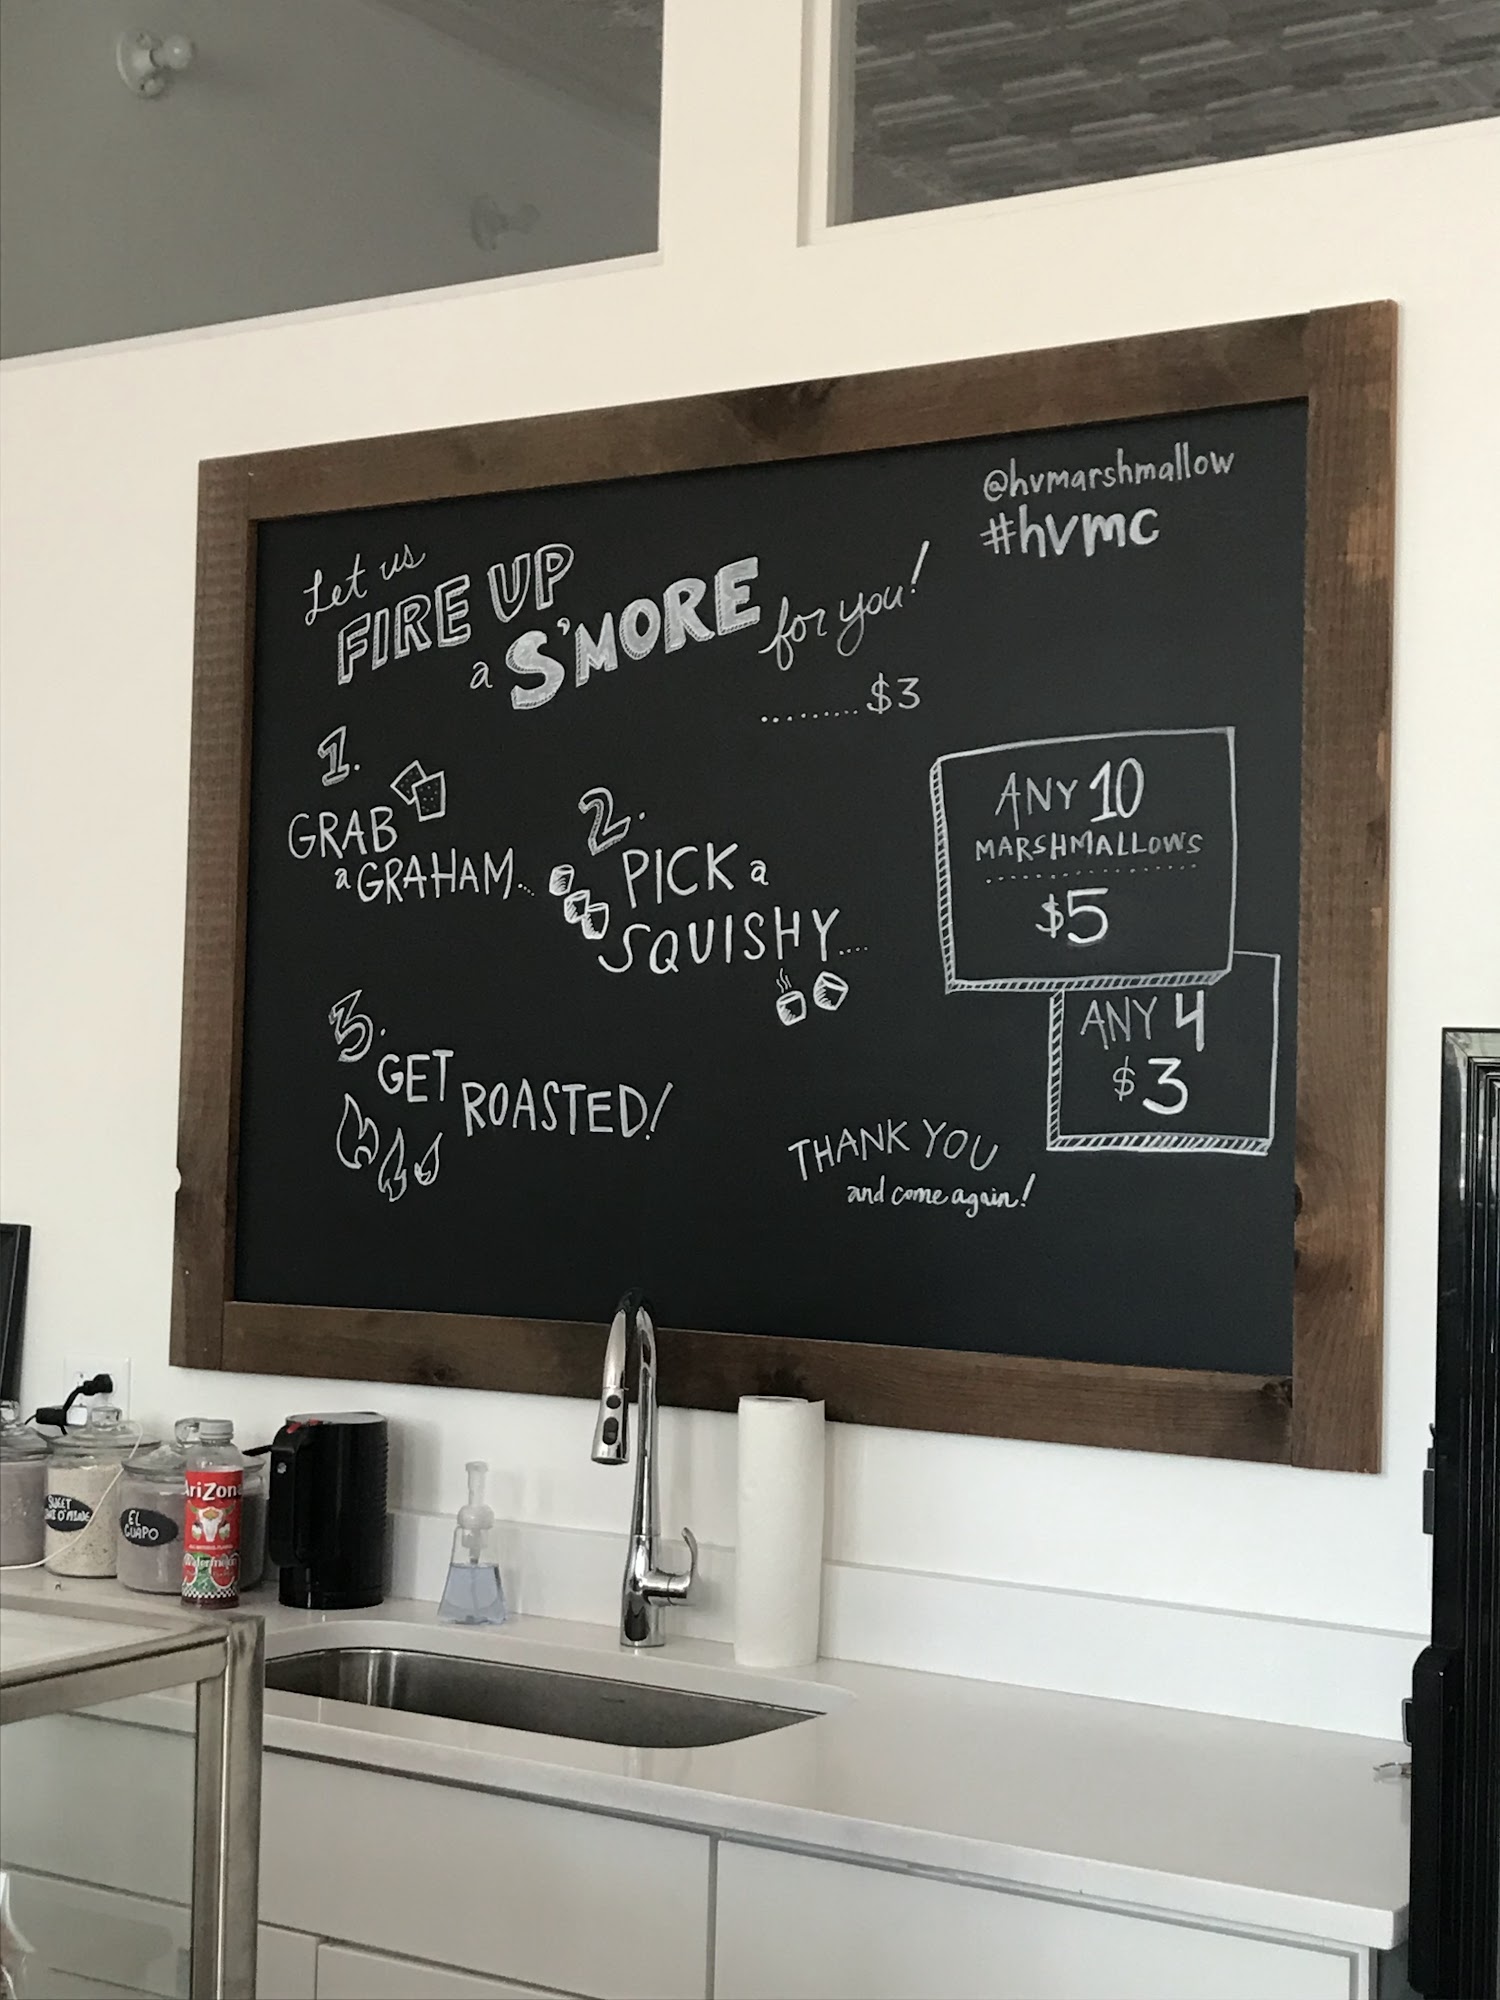 @hvmarshmallow
#hvmc
Let us
FIRE UP
a S'MORE for you!
.........$3
1.
GRAB
a GRAHAM...
2.
PICK a
SQUISHY....
3.
GET ROASTED!
ANY 10
MARSHMALLOWS
$5
ANY 4
$3
THANK YOU
and come again!
SWEET
EL
GUAPO
AriZona
Watermelon